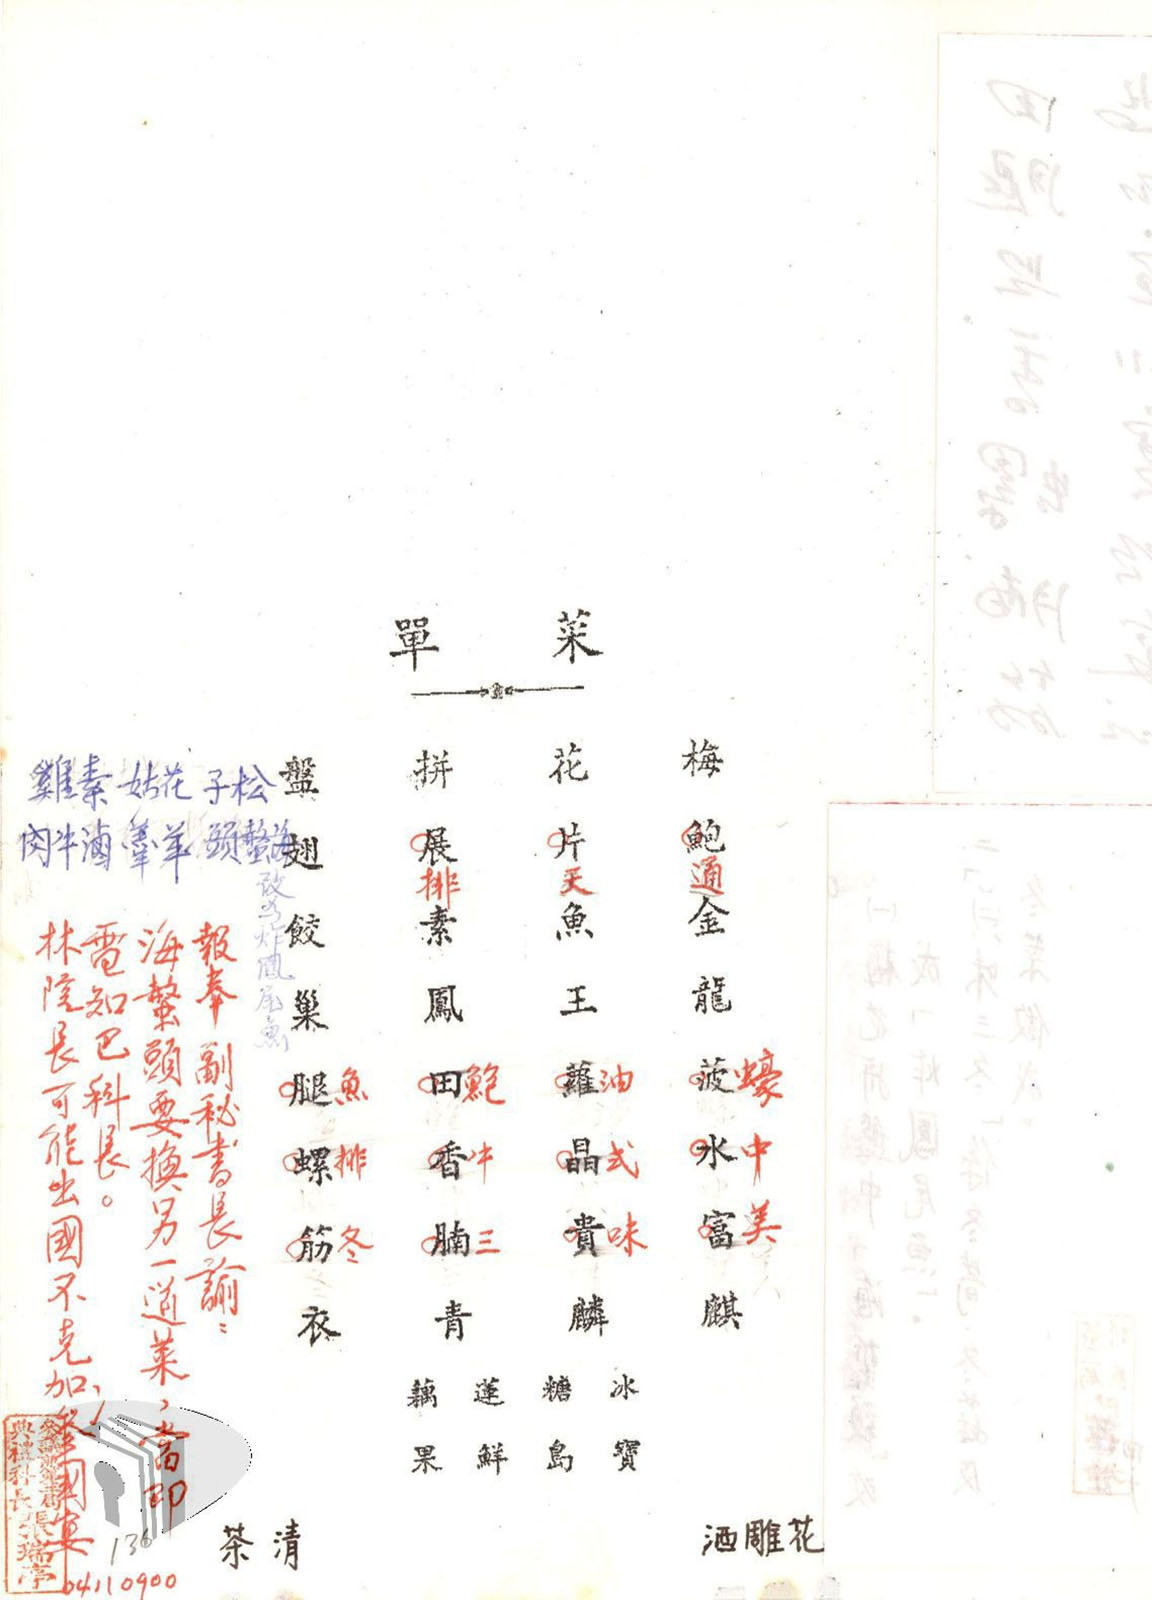 菜單
梅花拼盤
鮑片展翅
通天排
金魚素餃
龍王鳳巢
菠蘿田腿
蠔油鮑魚
水晶香螺
中式牛排
富貴腩筋
美味三冬
麒麟青衣
冰糖蓮藕
寶島鮮果
花雕酒
清茶
松子 花姑 素雞
海蟄頭 羊羹 滷牛肉
改為炸鳳尾魚
報奉 副秘書長諭：
海蟄頭要換另一道菜、當即
電知巴科長。
林院長可能出國不克加參國宴
典禮科長張瑞亭
04110900
136